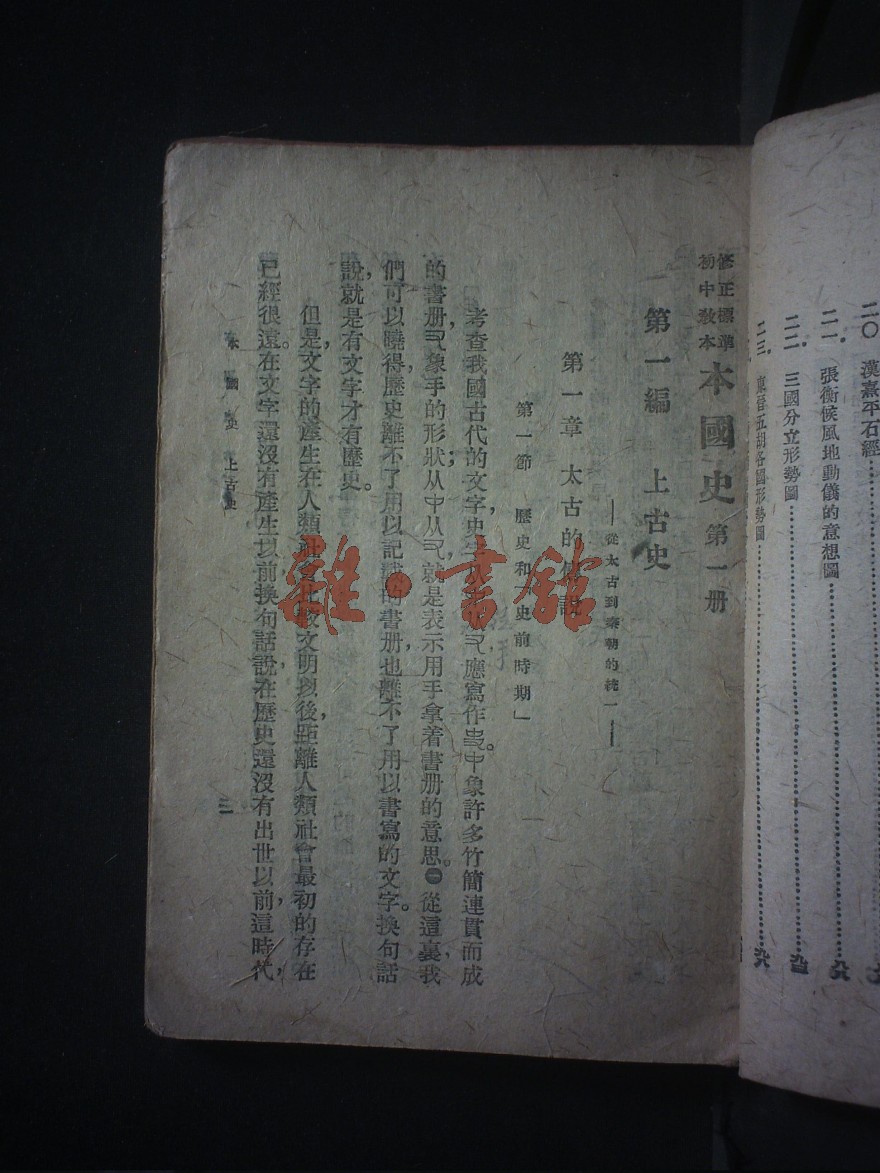 二〇 漢熹平石經
二一 張衡候風地動儀的意想圖
二二 三國分立形勢圖
二三 東晉五胡各國形勢圖
修正標準
初中教本
本國史 第一册
第一編 上古史
——從太古到秦朝的統一——
第一章 太古的傳說
第一節 歷史和「史前時期」
考查我國古代的文字，史字
應寫作㕜。中象許多竹簡連貫而成
的書册，又象手的形狀；从中从又，就是表示用手拿着書册的意思。㊀從這裏，我
們可以曉得，歷史離不了用以記載的書册，也離不了用以書寫的文字。換句話
說，就是有文字才有歷史。
但是，文字的產生，在人類社會比較文明以後，距離人類社會最初的存在，
已經很遠。在文字還沒有產生以前，換句話說，在歷史還沒有出世以前，這時代，
本國史 上古史
三
雜·書館